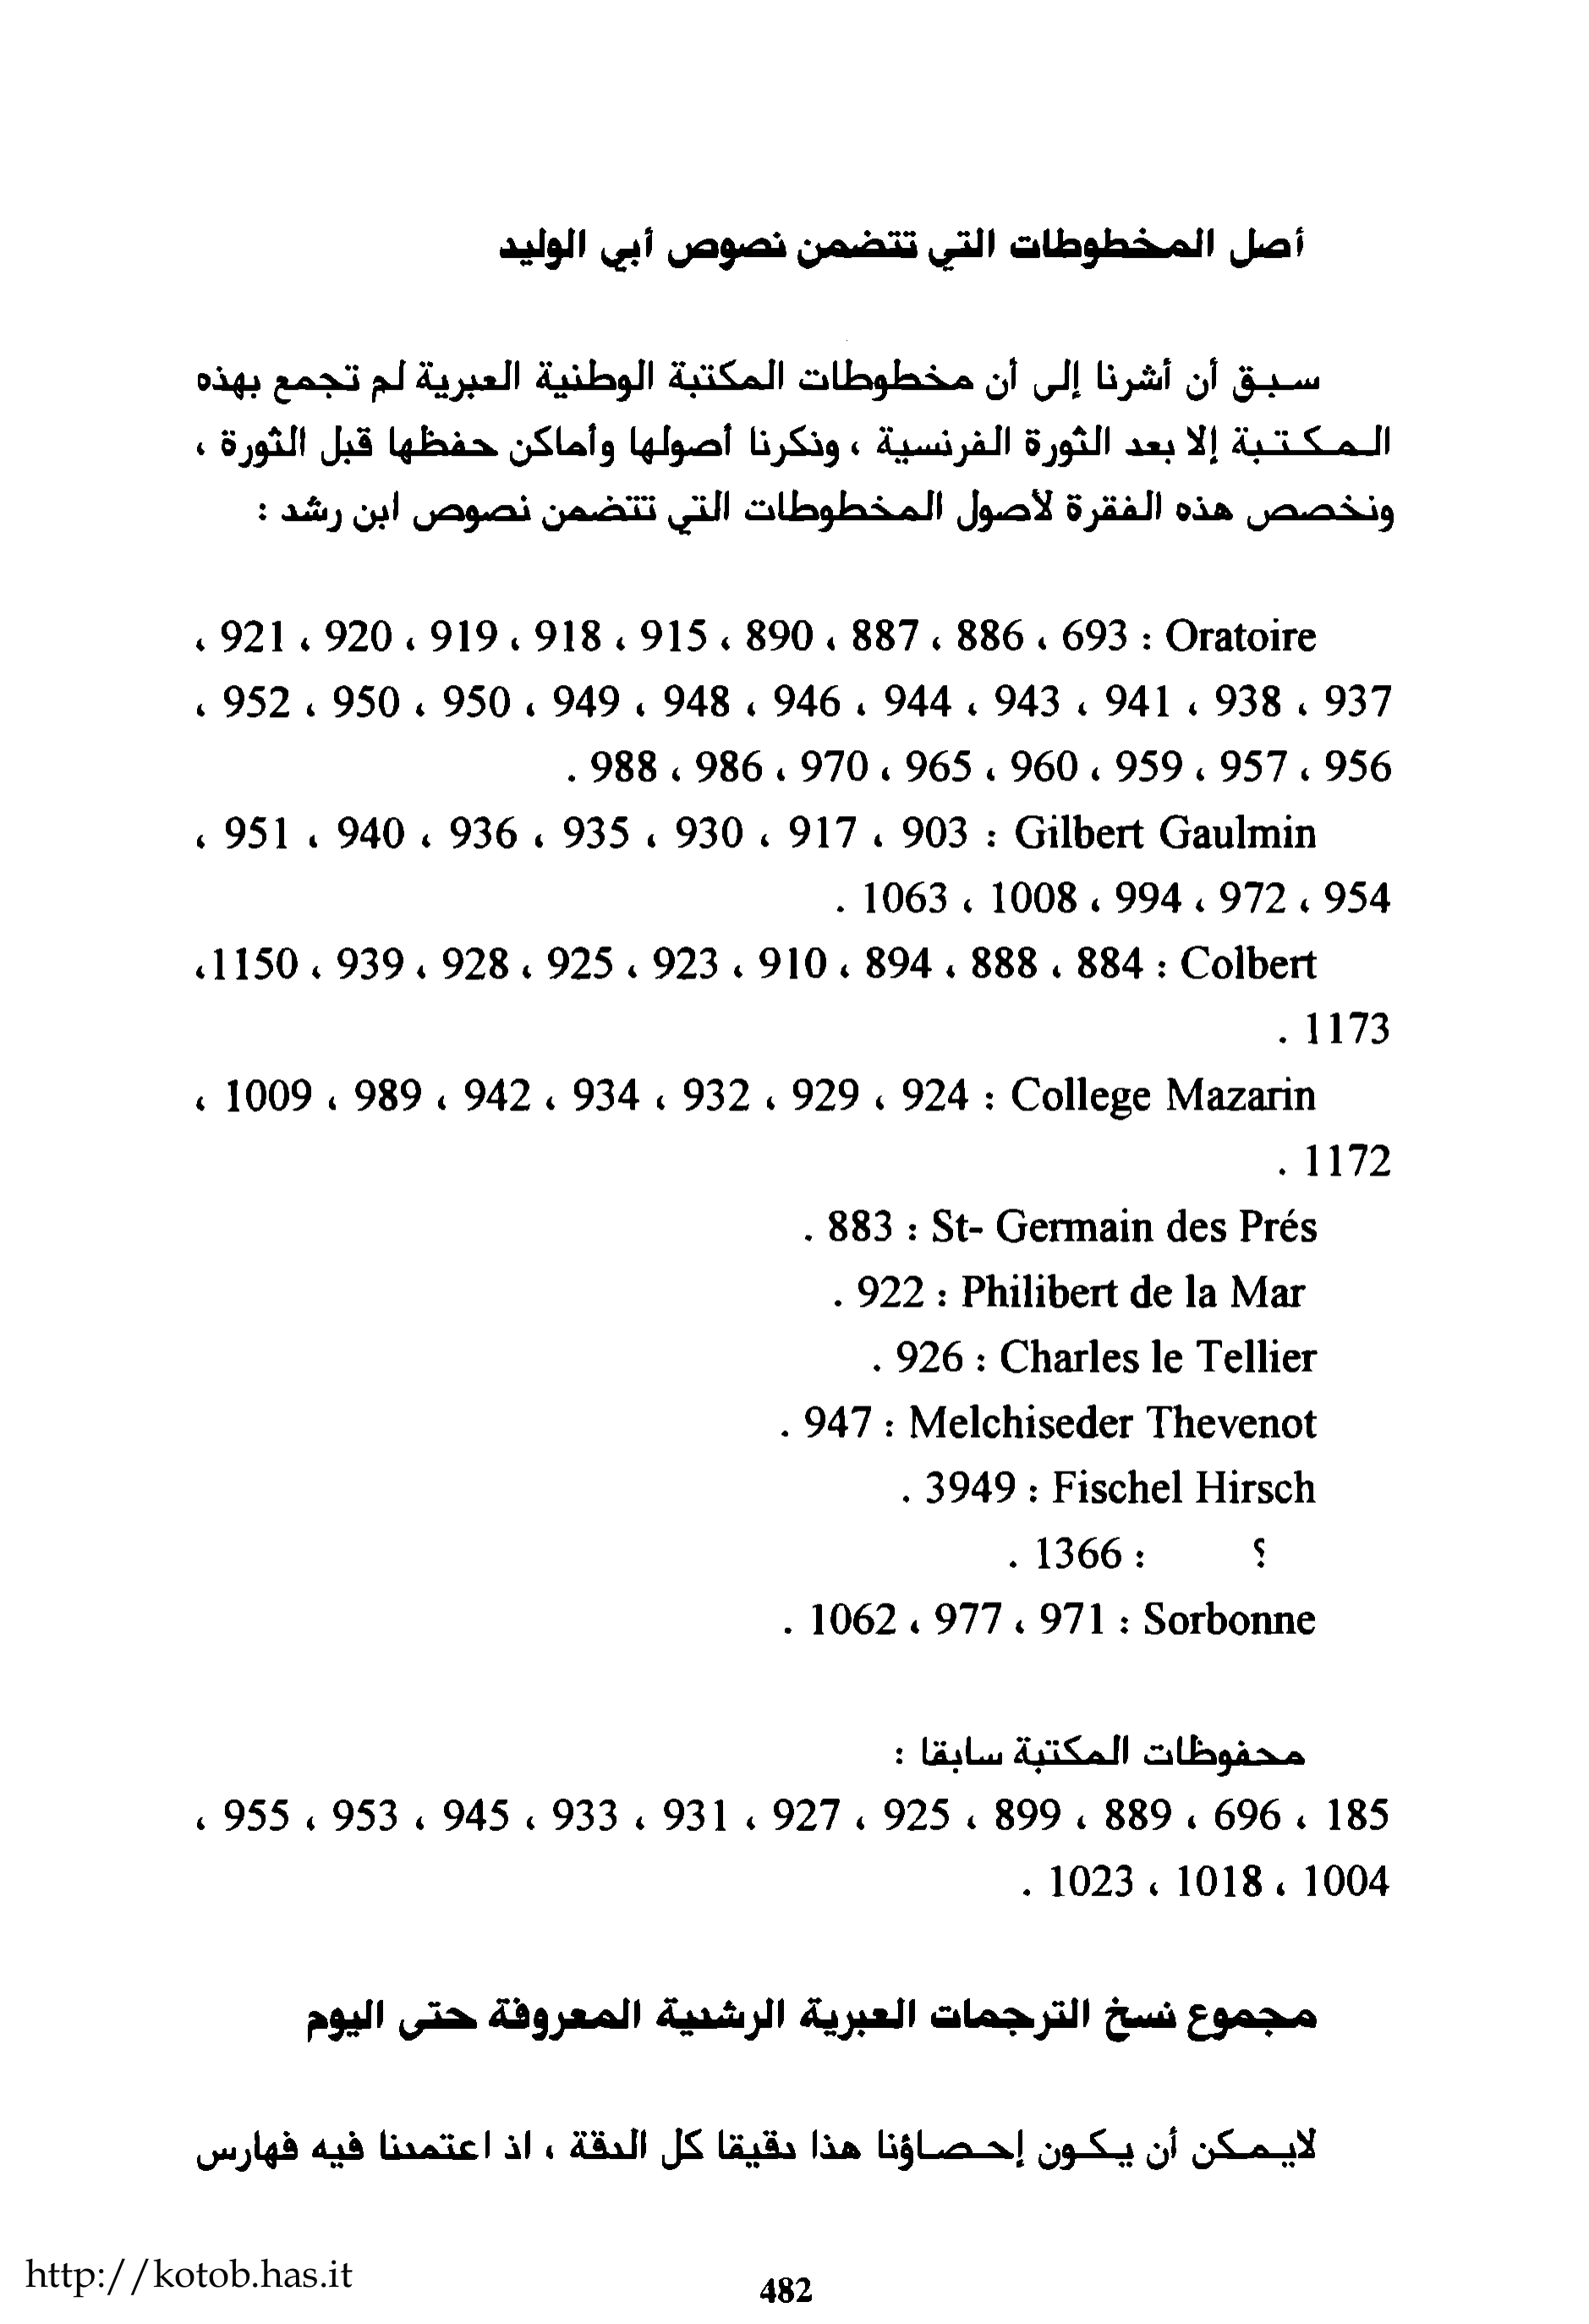 أصل المخطوطات التي تتضمن نصوص أبي الوليد
سبق أن أشرنا إلى أن مخطوطات المكتبة الوطنية العبرية لم تجمع بهذه
المكتبة إلا بعد الثورة الفرنسية ، وذكرنا أصولها وأماكن حفظها قبل الثورة ،
ونخصص هذه الفقرة لأصول المخطوطات التي تتضمن نصوص ابن رشد :
Oratoire : 693 ، 886 ، 887 ، 890 ، 915 ، 918 ، 919 ، 920 ، 921 ،
937 ، 938 ، 941 ، 943 ، 944 ، 946 ، 948 ، 949 ، 950 ، 950 ، 952 ،
956 ، 957 ، 959 ، 960 ، 965 ، 970 ، 986 ، 988 .
Gilbert Gaulmin : 903 ، 917 ، 930 ، 935 ، 936 ، 940 ، 951 ،
954 ، 972 ، 994 ، 1008 ، 1063 .
Colbert : 884 ، 888 ، 894 ، 910 ، 923 ، 925 ، 928 ، 939 ، 1150،
1173 .
College Mazarin : 924 ، 929 ، 932 ، 934 ، 942 ، 989 ، 1009 ،
1172 .
St- Germain des Prés : 883 .
Philibert de la Mar : 922 .
Charles le Tellier : 926 .
Melchiseder Thevenot : 947 .
Fischel Hirsch : 3949 .
؟ : 1366 .
Sorbonne : 971 ، 977 ، 1062 .
محفوظات المكتبة سابقا :
185 ، 696 ، 889 ، 899 ، 925 ، 927 ، 931 ، 933 ، 945 ، 953 ، 955 ،
1004 ، 1018 ، 1023 .
مجموع نسخ الترجمات العبرية الرشدية المعروفة حتى اليوم
لايمكن أن يكون إحصاؤنا هذا دقيقا كل الدقة ، اذ اعتمدنا فيه فهارس
http://kotob.has.it
482